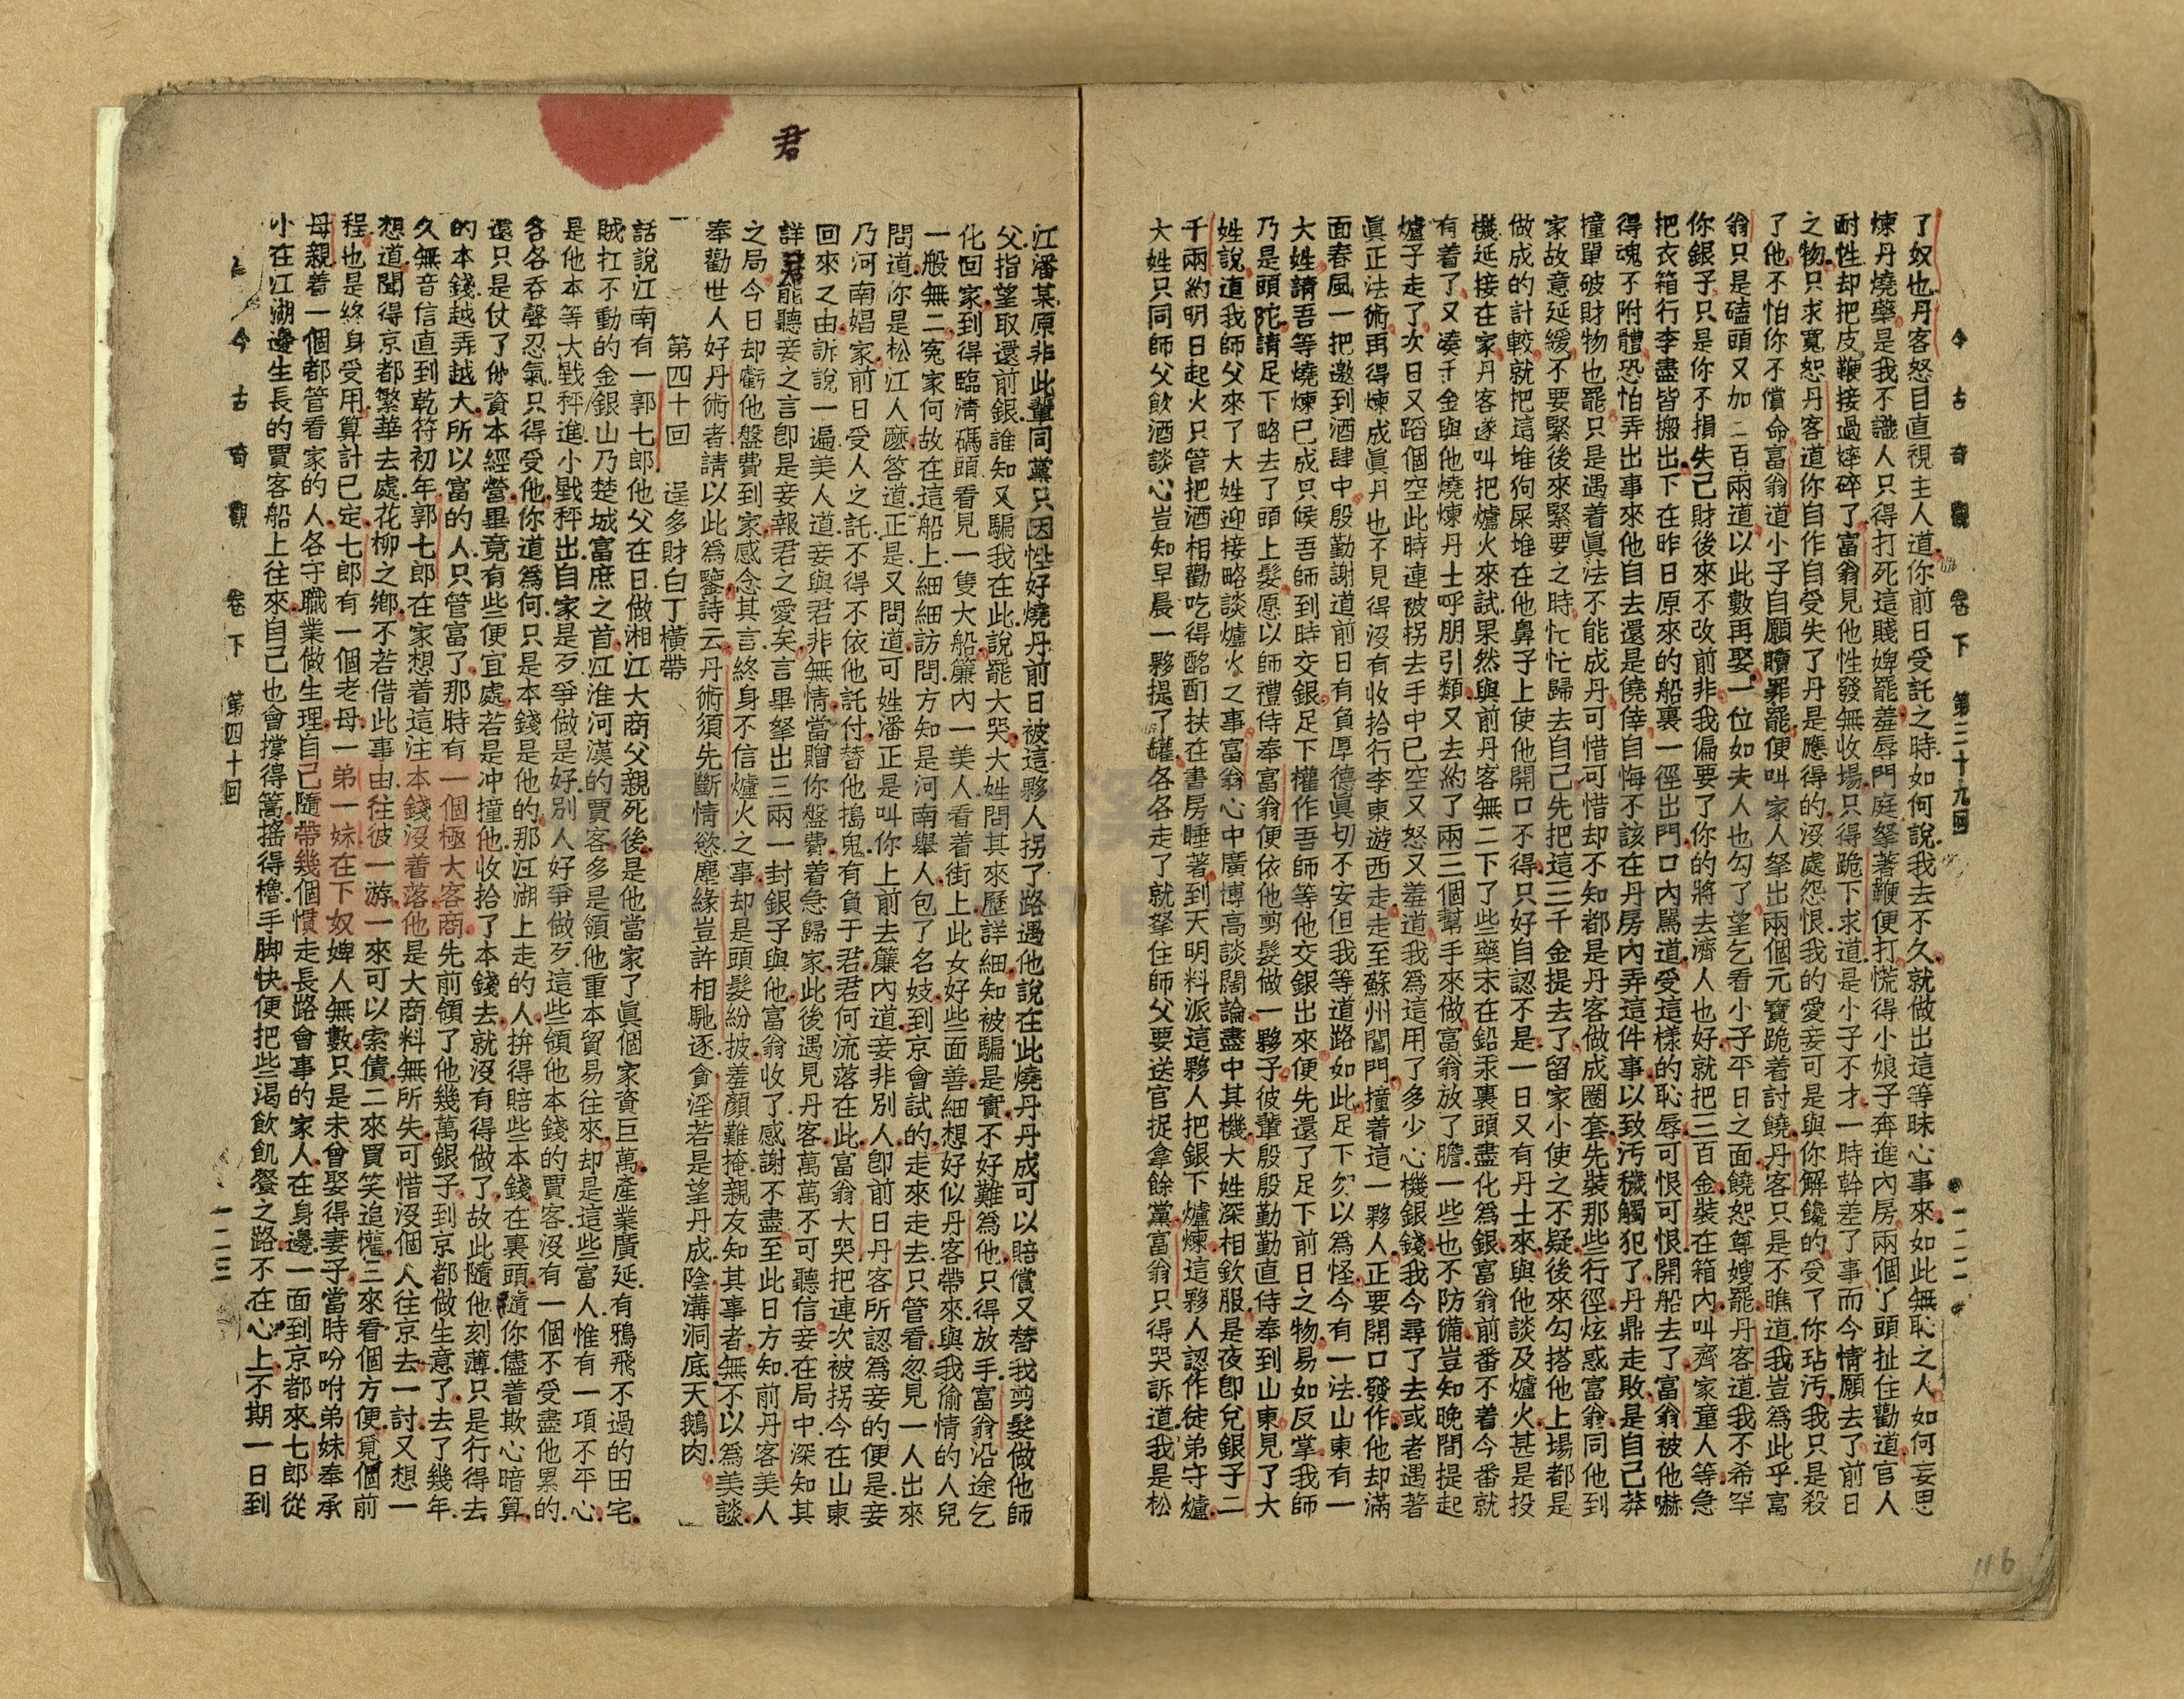 今古奇觀 卷下 第三十九回 一二二
了奴也丹客怒目直視主人道你前日受託之時如何說我去不久就做出這等昧心事來如此無恥之人如何妄思
煉丹燒藥是我不識人只得打死這賤婢罷羞辱門庭拏著鞭便打慌得小娘子奔進內房兩個丫頭扯住勸道官人
耐性却把皮鞭接過摔碎了富翁見他性發無收場只得跪下求道是小子不才一時幹差了事而今情願去了前日
之物只求寬恕丹客道你自作自受失了丹是應得的沒處怨恨我的愛妾可是與你解饞的受了你玷汚我只是殺
了他不怕你不償命富翁道小子自願贖罪罷便叫家人拏出兩個元寶跪着討饒丹客只是不瞧道我豈爲此乎富
翁只是磕頭又加二百兩道以此數再娶一位如夫人也勾了望乞看小子平日之面饒恕尊嫂罷丹客道我不希罕
你銀子只是你不損失己財後來不改前非我偏要了你的將去濟人也好就把三百金裝在箱內叫齊家童人等急
把衣箱行李盡皆搬出下在昨日原來的船裏一徑出門口內罵道受這樣的恥辱可恨可恨開船去了富翁被他嚇
得魂不附體恐怕弄出事來他自去還是僥倖自悔不該在丹房內弄這件事以致汚穢觸犯了丹鼎走敗是自己莽
撞單破財物也罷只是遇着眞法不能成丹可惜可惜却不知都是丹客做成圈套先裝那些行徑炫惑富翁同他到
家故意延緩不要緊後來緊要之時忙忙歸去自己先把這三千金提去了留家小使之不疑後來勾搭他上塲都是
做成的計較就把這堆狗屎堆在他鼻子上使他開口不得只好自認不是一日又有丹士來與他談及爐火甚是投
機延接在家丹客遂叫把爐火來試果然與前丹客無二下了些藥末在鉛汞裏頭盡化爲銀富翁前番不着今番就
有着了又凑千金與他燒煉丹士呼朋引類又去約了兩三個幫手來做富翁放了膽一些也不防備豈知晚間提起
爐子走了次日又蹈個空此時連被拐去手中已空又怒又羞道我爲這用了多少心機銀錢我今尋了去或者遇著
眞正法術再得煉成眞丹也不見得沒有收拾行李東遊西走走至蘇州閶門撞着這一夥人正要開口發作他却滿
面春風一把邀到酒肆中殷勤謝道前日有負厚德眞切不安但我等道路如此足下勿以爲怪今有一法山東有一
大姓請吾等燒煉已成只候吾師到時交銀足下權作吾師等他交銀出來便先還了足下前日之物易如反掌我師
乃是頭陀請足下略去了頭上髮愿以師禮侍奉富翁便依他剪髮做一夥子彼輩殷殷勤勤直侍奉到山東見了大
姓說道我師父來了大姓迎接略談爐火之事富翁心中廣博高談闊論盡中其機大姓深相欽服是夜卽兌銀子二
千兩約明日起火只管把酒相勸吃得酩酊扶在書房睡著到天明料派這夥人把銀下爐煉這夥人認作徒弟守爐
大姓只同師父飲酒談心豈知早晨一夥提了罐各各走了就拏住師父要送官捉拿餘黨富翁只得哭訴道我是松
116
君
江潘某原非此輩同黨只因性好燒丹前日被這夥人拐了路遇他說在此燒丹丹成可以賠償又替我剪髮做他師
父指望取還前銀誰知又騙我在此說罷大哭大姓問其來歷詳細知被騙是實不好難爲他只得放手富翁沿途乞
化回家到得臨淸碼頭看見一隻大船簾內一美人看着街上此女好些面善細想好似丹客帶來與我偷情的人兒
一般無二寃家何故在這船上細細訪問方知是河南舉人包了名妓到京會試的走來走去只管看忽見一人出來
問道你是松江人麼答道正是又問道可姓潘正是叫你上前去簾內道妾非別人卽前日丹客所認爲妾的便是妾
乃河南娼家前日受人之託不得不依他託付替他搗鬼有負于君君何流落在此富翁大哭把連次被拐今在山東
回來之由訴說一遍美人道妾與君非無情當贈你盤費着急歸家此後遇見丹客萬萬不可聽信妾在局中深知其
詳君能聽妾之言卽是妾報君之愛矣言畢拏出三兩一封銀子與他富翁收了感謝不盡至此日方知前丹客美人
之局今日却虧他盤費到家感念其言終身不信爐火之事却是頭髮紛披羞顏難掩親友知其事者無不以爲美談
奉勸世人好丹術者請以此爲鑒詩云丹術須先斷情慾塵緣豈許相馳逐貪淫若是望丹成陰溝洞底天鵝肉
第四十回 逞多財白丁橫帶
話說江南有一郭七郎他父在日做湘江大商父親死後是他當家了眞個家資巨萬產業廣延有鴉飛不過的田宅
賊扛不動的金銀山乃楚城富庶之首江淮河漢的賈客多是領他重本貿易往來却是這些富人惟有一項不平心
是他本等大戥秤進小戥秤出自家是歹爭做是好別人好爭做歹這些領他本錢的賈客沒有一個不受盡他累的
各各吞聲忍氣只得受他你道爲何只是本錢是他的那江湖上走的人拚得賠些本錢在裏頭隨你儘着欺心暗算
還只是仗了他資本經營畢竟有些便宜處若是冲撞他收拾了本錢去就沒有得做了故此隨他刻薄只是行得去
的本錢越弄越大所以富的人只管富了那時有一個極大客商先前領了他幾萬銀子到京都做生意了去了幾年
久無音信直到乾符初年郭七郎在家想着這注本錢沒着落他是大商料無所失可惜沒個人往京去一討又想一
想道聞得京都繁華去處花柳之鄉不若借此事由往彼一游一來可以索債二來買笑追懽三來看個方便覓個前
程也是終身受用算計已定七郎有一個老母一弟一妹在下奴婢人無數只是未曾娶得妻子當時吩咐弟妹奉承
母親着一個都管看家的人各守職業做生理自己隨帶幾個慣走長路會事的家人在身邊一面到京都來七郎從
小在江湖邊生長的賈客船上往來自己也會撐得篙搖得櫓手脚快便把些渴飮飢餐之路不在心上不期一日到
今古奇觀 卷下 第四十回 一二三